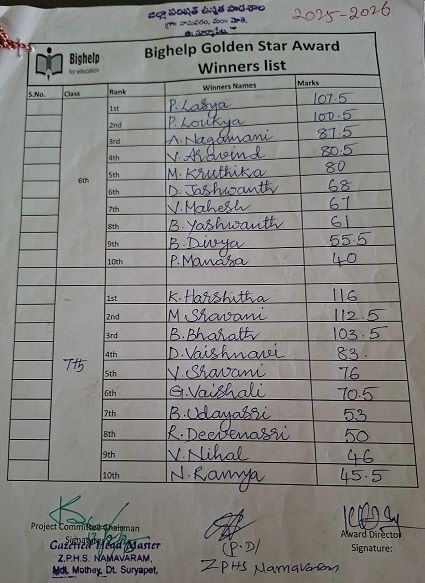 జిల్లా పరిషత్ ఉన్నత పాఠశాల
2025-2026
Bighelp
for education
Bighelp Golden Star Award
Winners list
S.No. Class Rank Winners Names Marks
6th
1st P. Lasya 107.5
2nd P. Loukya 100.5
3rd A. Nagamani 87.5
4th V. Aravind 80.5
5th M. Kruthika 80
6th D. Jashwanth 68
7th V. Mahesh 67
8th B. Yashwanth 61
9th B. Divya 55.5
10th P. Manasa 40
7th
1st K. Harshitha 116
2nd M. Sravani 112.5
3rd B. Bharath 103.5
4th D. Vaishnavi 83.
5th V. Sravani 76
6th G. Vaishali 70.5
7th B. Udayasri 53
8th R. Deevenasri 50
9th V. Nihal 46
10th N. Ramya 45.5
Project Committee Chairman
Signature
Gazetted Head Master
Z.P.H.S. NAMAVARAM,
Mdl. Mothey, Dt. Suryapet,
(P.D)
ZPHS Namavaram
Award Director
Signature: